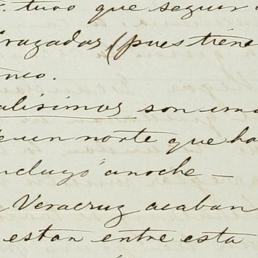 tuvo que seguir a
fragadas (pues tiene
alisimos son una
un norte que ha
cluyó anoche –
Veracruz acaban
estan entre esta